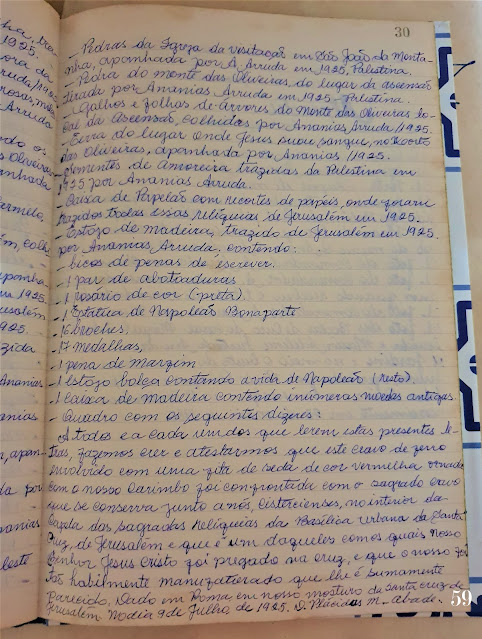 30
- Pedras da Igreja da visitação em São João da Monta-
nha, apanhada por A. Arruda em 1925, Palestina.
- Pedra do monte das Oliveiras do lugar da ascensão
tirada por Ananias Arruda em 1925 - Palestina.
- Galhos e folhas de árvores do Monte das Oliveiras lo-
cal da Ascensão, colhidos por Ananias, Arruda/1925.
- Terra do lugar onde Jesus suou sangue, no horto
das Oliveiras, apanhada por Ananias/1925.
- Sementes de Amoreira trazidas da Palestina em
1925 por Ananias Arruda.
- Caixa de Papelão com recortes de papéis, onde foram
trazidos todas essas relíquias de Jerusalém em 1925.
- Estojo de madeira, trazido de Jerusalém em 1925.
por Ananias, Arruda, contendo:
- bicos de penas de escrever.
- 1 par de abotuaduras
- 1 rosário de cor (preta)
- 1 Estátua de Napoleão Bonaparte
- 16 broches,
- 17 medalhas,
- 1 pena de marfim
- 1 estojo bolça contando a vida de Napoleão (resto).
- 1 caixa de madeira contendo inúmeras moedas antigas.
- Quadro com os seguintes dizeres:
A todos e a cada um dos que lerem estas presentes le-
tras, fazemos crer e atestarmos que este cravo de ferro
envolvido com uma fita de seda de cor vermelha ornada
com o nosso carimbo foi confrontada com o sagrado cravo
que se conserva junto a nós, Cistercienses, no interior da
Capela das sagradas Relíquias da Basílica urbana da Santa
Cruz, de Jerusalém e que é um daqueles com os quais Nosso
Senhor Jesus Cristo foi pregado na cruz, e que o nosso foi
tão habilmente manufaturado que lhe é sumamente
parecido. Dado em Roma em nosso mosteiro da Santa cruz de
Jerusalém no dia 9 de Julho de 1925. D. Plácidus M. Abade.
59